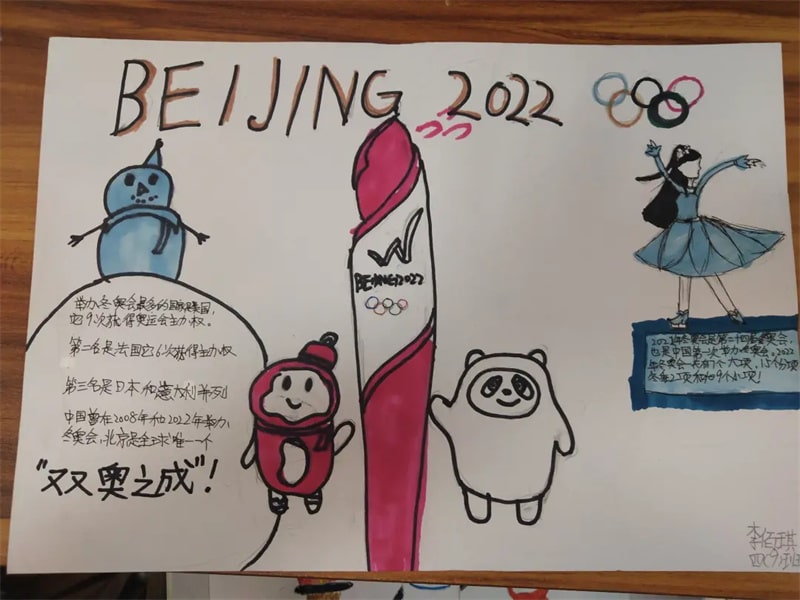 BEIJING 2022
BEIJING2022
举办冬奥会最多的国家是美国,
它9次获得奥运会主办权。
第二名是法国它6次获得主办权
第三名是日本和意大利并列
中国曾在2008年和2022年举办
冬奥会,北京是全球唯一一个
"双奥之成"!
2022年冬奥会是第二十四届冬奥会,
也是中国第一次举办冬奥会。2022
年冬奥会一共有7个大项,15个分项
李佰琪
四(9)班